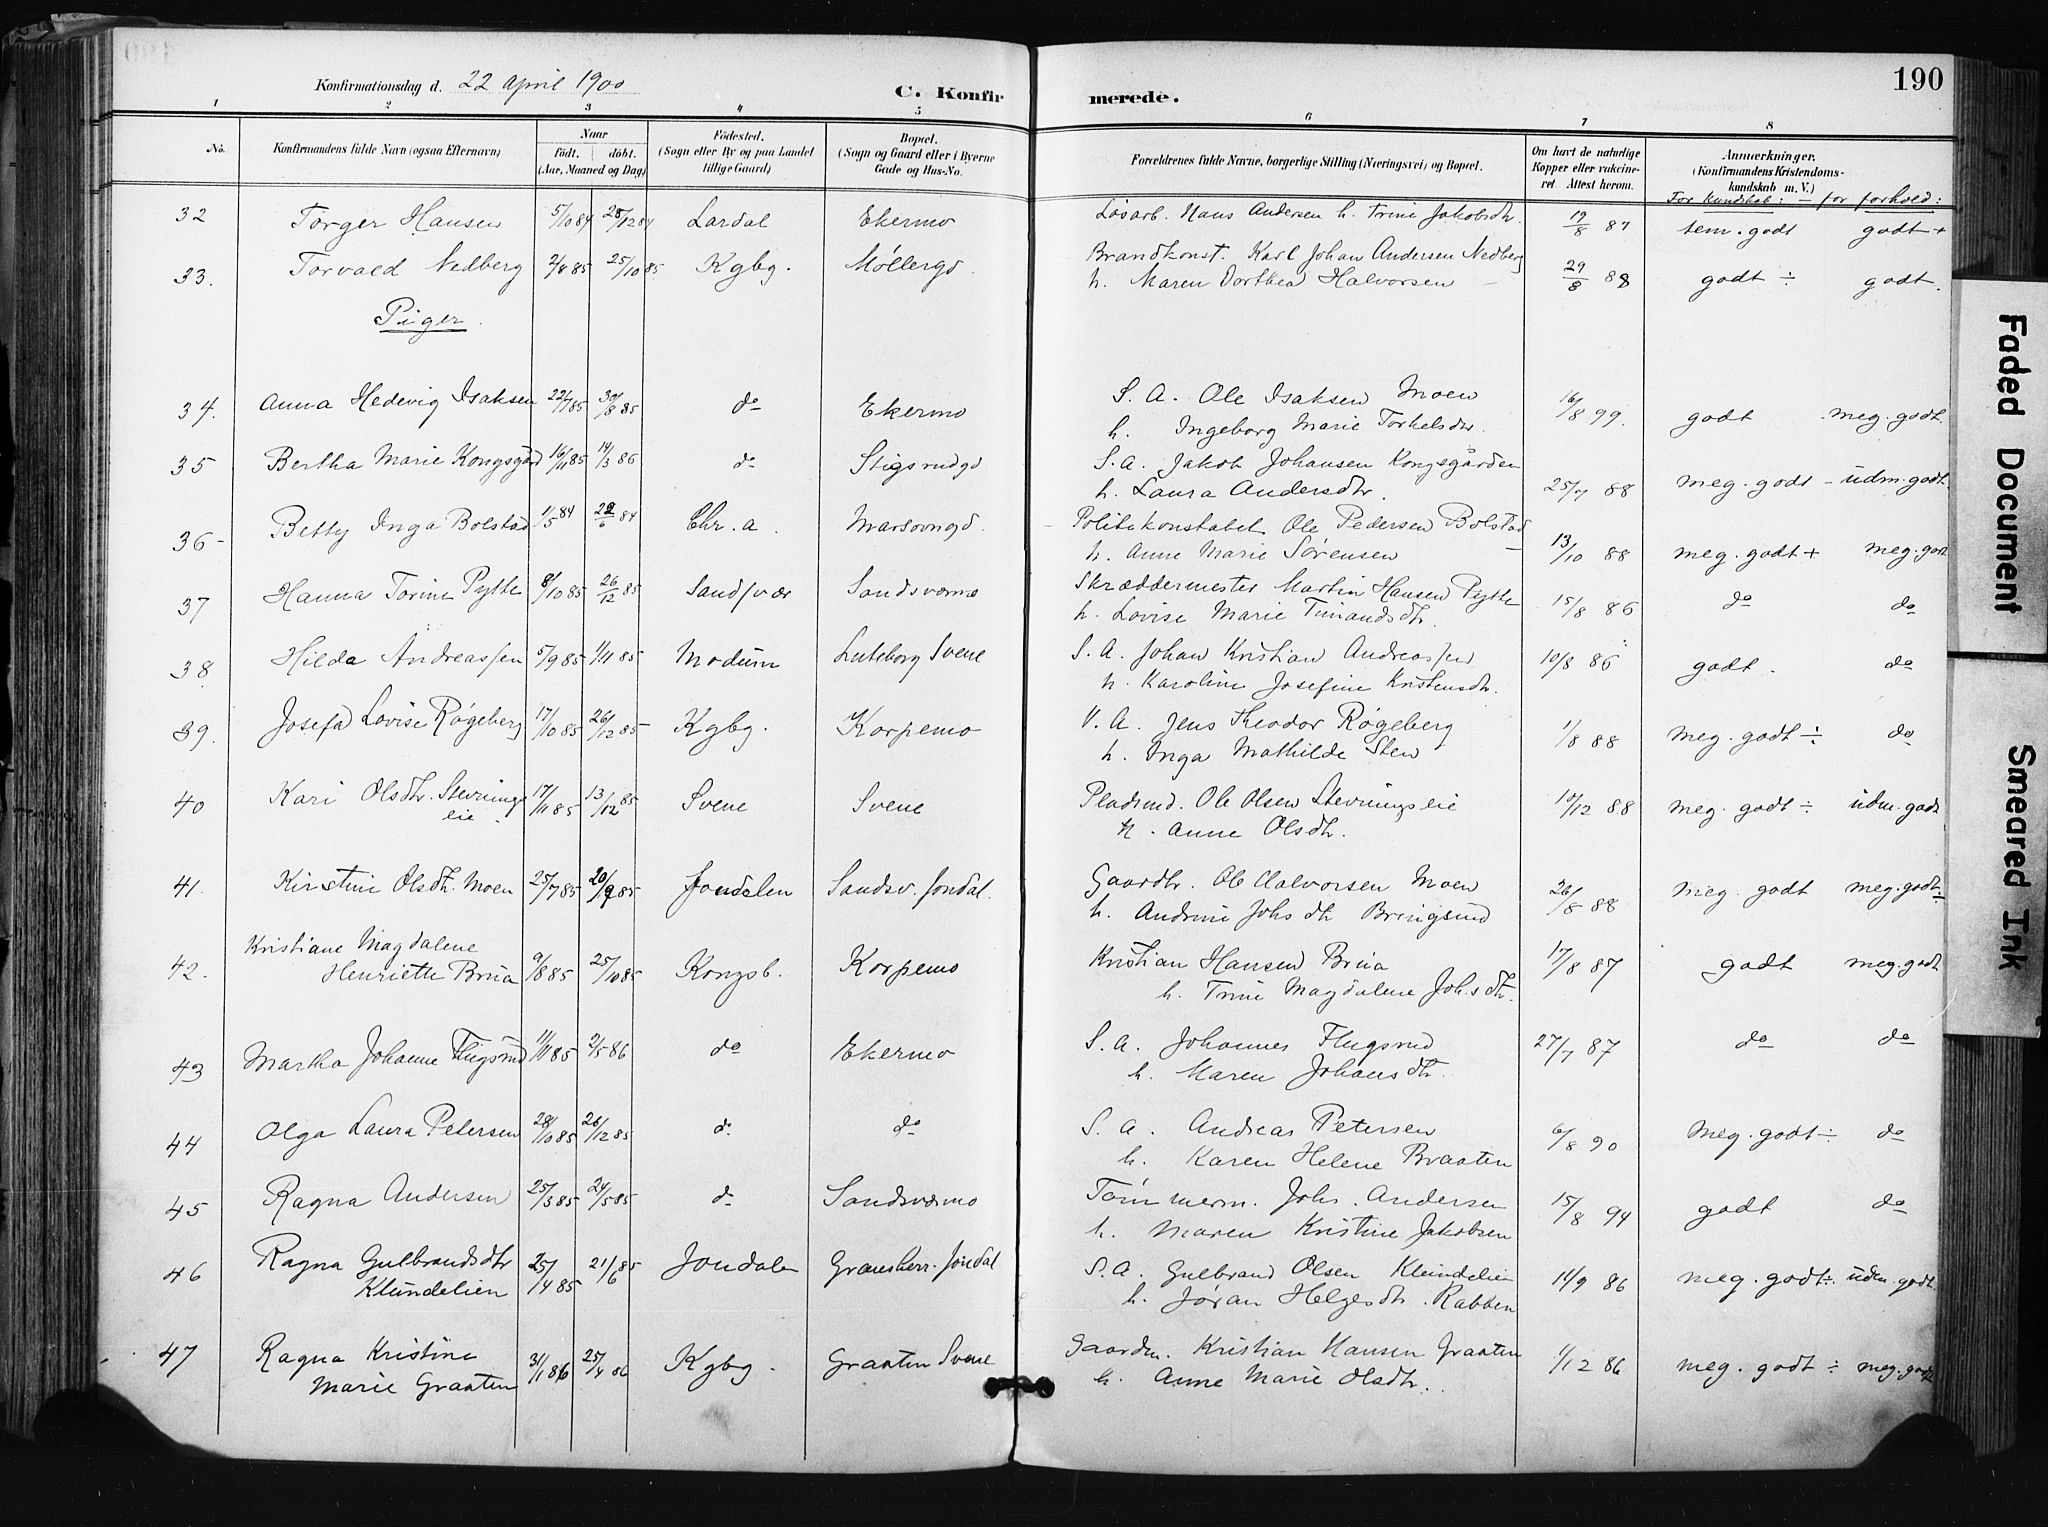 190
Konfirmationsdag d. 22 april 1900
C. Konfirmerede.
1 2 3 4 5 6 7 8
No. Konfirmandens fulde Navn (ogsaa Efternavn) Naar födt. döbt. (Aar, Maaned og Dag) Födested. (Sogn eller By og paa Landet tillige Gaard) Bopæl. (Sogn og Gaard eller i Byerne Gade og Hus-No. Forældrenes fulde Navne, borgerlige Stilling (Næringsvei) og Bopæl. Om havt de naturlige Kopper eller vakcineret Attest herom. Anmærkninger. (Konfirmandens Kristendomskundskab m. V.)
For kundskab: — for forhold:
32 Torger Hansen 5/10 84 28/12 84 Lardal Ekermo Løsarb. Hans Andersen h. Trine Jakobsdtr. 19/8 87 tem. godt godt +
33. Torvald Nedberg 2/8 85 25/10 85 Kgbg. Møllergd. Brandkonst. Karl Johan Andersen Nedberg
h. Maren Dorthea Halvorsen 29/8 88 godt ÷ godt.
Piger.
34. Anna Hedevig Isaksen 22/7 85 30/8 85 do Ekermo S. A. Ole Isaksen Moen
h. Ingeborg Marie Torkelsdtr. 16/8 99. godt meg. godt.
35 Bertha Marie Kongsgård 16/11 85 14/3 86 do Stigsrudgd S. A. Jakob Johansen Kongsgården
h. Laura Andersdtr. 25/7 88 meg. godt - udm. godt.
36 Betty Inga Bolstad 1/5 84 22/6 84 Chr.a. Marsovngd. Politikonstabel Ole Pedersen Bolstad
h. Anne Marie Sørensen 13/10 88 meg. godt + meg. godt
37 Hanna Torine Pytte 8/10 85 26/12 85 Sandsvær Sandsværmo Skræddermester Martin Hansen Pytte
h. Lovise Marie 15/8 86 do do
38. Hilda Andreassen 5/9 85 1/11 85 Modum Luteborg Svene S. A. Johan Kristian Andreassen
h. Karoline Josefine Kristensdtr. 10/8 86 godt. do
39. Josefa Lovise Røgeberg 17/10 85 26/12 85 Kgbg. Korpemo V. A. Jens Theodor Røgeberg
h. Inga Mathilde Sten 1/8 88 meg. godt ÷ do
40 Kari Olsdtr. Stevnings
eie 17/11 85 13/12 85 Svene Svene Pladsmd. Ole Olsen Stevningseie
h. Anne Olsdtr. 10/12 88 meg. godt ÷ udm. godt
41. Kirstine Olsdtr. Moen 25/7 85 20/9 85 Jondalen Sandsv. Jondal. Gaardbr. Ole Halvorsen Moen
h. Andrine Johsdtr Bringsrud 26/8 88 meg. godt meg. godt ÷
42. Kristiane Magdalene
Henriette Brua 9/8 85 25/10 85 Kongsb. Korpemo Kristian Hansen Brua
h. Trine Magdalene Johsdtr. 17/8 87 godt meg. godt
43 Martha Johanne Flugsrud 11/11 85 2/5 86 do Ekermo S. A. Johannes Flugsrud
h. Maren Johansdtr. 27/7 87 do do
44 Olga Laura Petersen 28/10 85 26/12 85 do do S. A. Andreas Petersen
h. Karen Helene Braaten 6/8 90 Meg. godt ÷ do
45 Ragna Andersen 25/3 85 24/5 85 do Sandsværmo Tømmerm. Johs. Andersen
h. Maren Kristine Jakobsen 15/8 94 godt do
46 Ragna Gulbrandsdtr
Klundelien 25/4 85 21/6 85 Jondalen Gransherr. Jondal S.A. Gulbrand Olsen Klundelien
h. Jøran Helgesdtr. Rabben 14/9 86 meg. godt ÷ udm. godt.
47 Ragna Kristine
Marie Graaten 31/1 86 25/4 86 Kgbg. Graaten Svene Gaardm. Kristian Hansen Graaten
h. Anne Marie Olsdtr. 1/12 86 meg. godt ÷ meg. godt
Faded Document
Smeared Ink